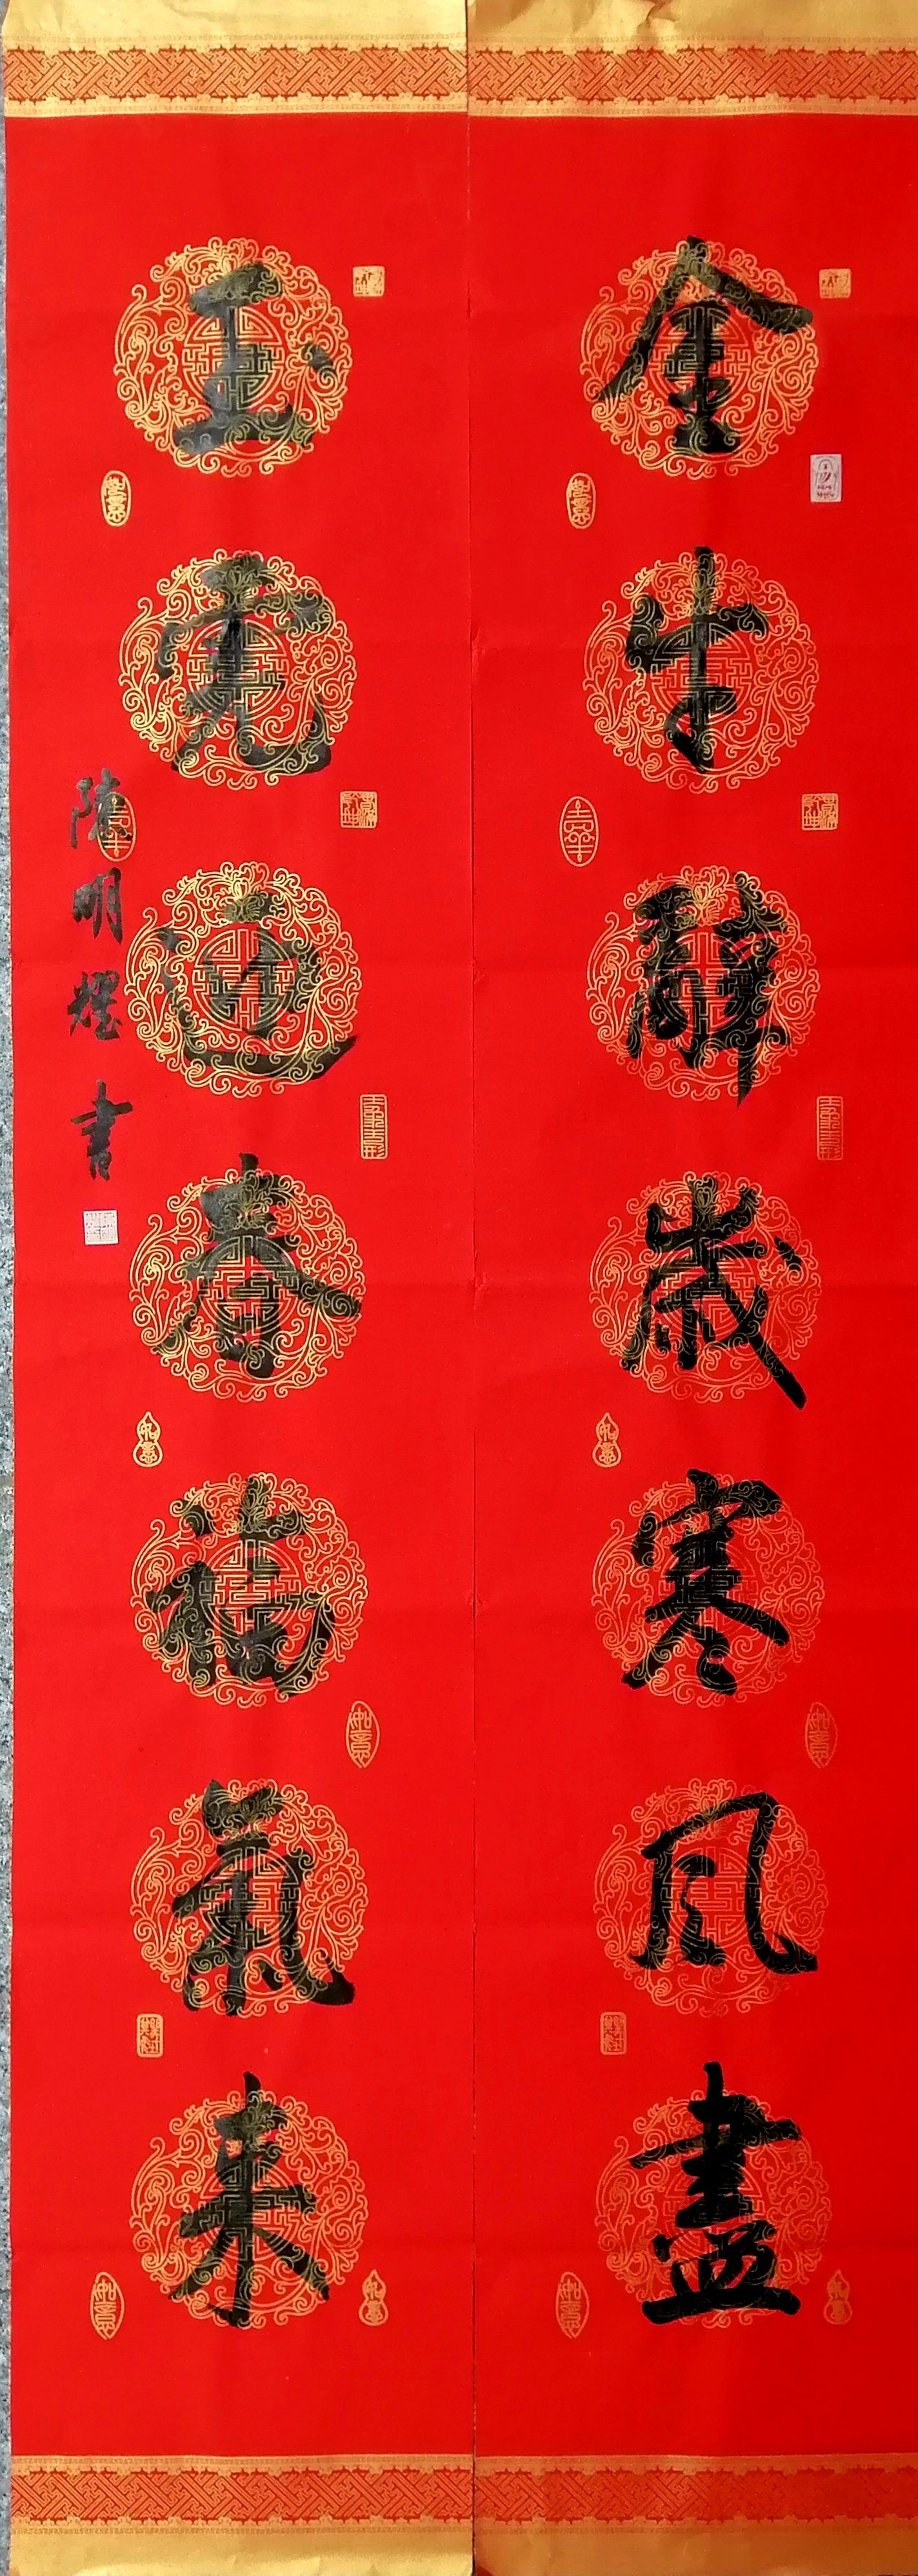 金牛辭歲寒風盡
玉虎迎春福氣來
陳明耀書